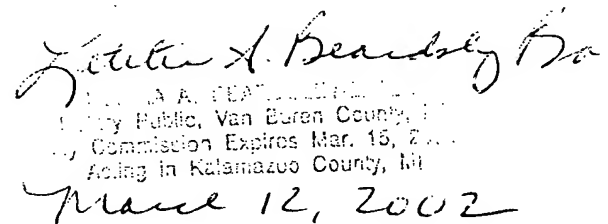 Letitia A. Beardsley
A. BEA
Public, Van Buren County,
Commission Expires Mar. 15,
Acting in Kalamazoo County, MI
March 12, 2002